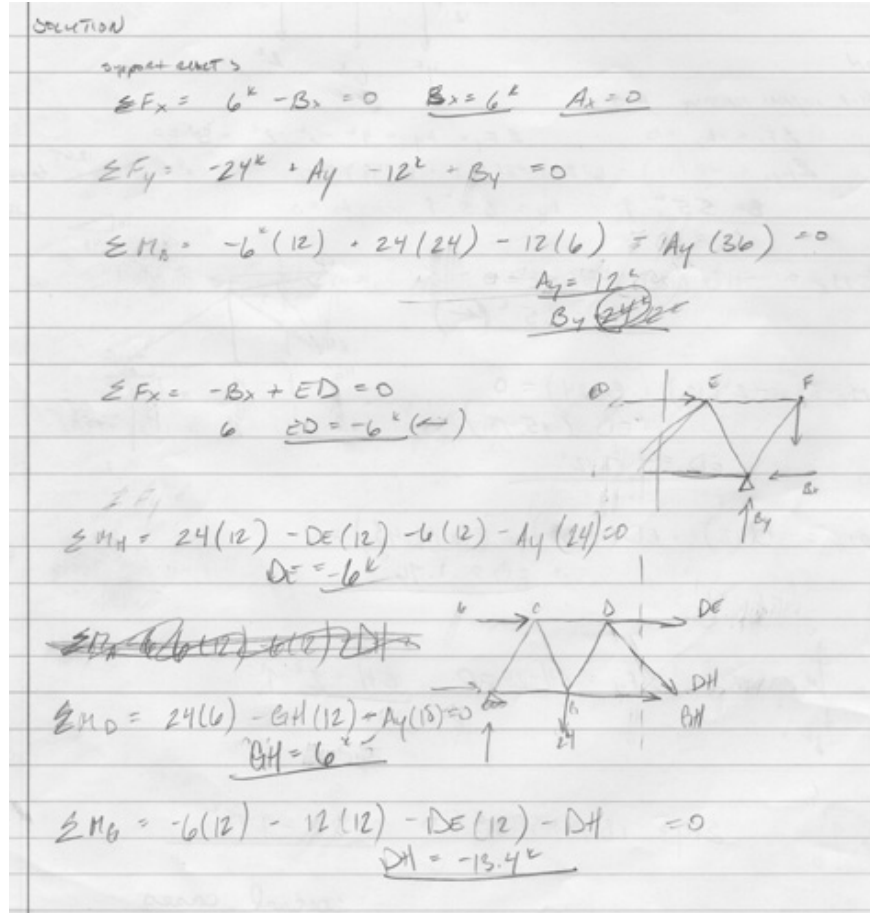 SOLUTION
support react s
ΣFx = 6ᵏ - Bx = 0 Bx = 6ᵏ Ax = 0
ΣFy = -24ᵏ + Ay - 12ᵏ + By = 0
-6ᵏ(12) + 24(24) - 12(6) - Ay(36) = 0
Ay = 12ᵏ
By
ΣFx = -Bx + ED = 0
E F
6 ED = -6ᵏ (←)
Bx
By
ΣMH = 24(12) - DE(12) - 6(12) - Ay(24) = 0
DE = -6ᵏ
6 C D DE
DH
GH
ΣMD = 24(6) - GH(12) - Ay(18) = 0
24
GH = 6ᵏ
ΣMG = -6(12) - 12(12) - DE(12) - DH = 0
DH = -13.4ᵏ